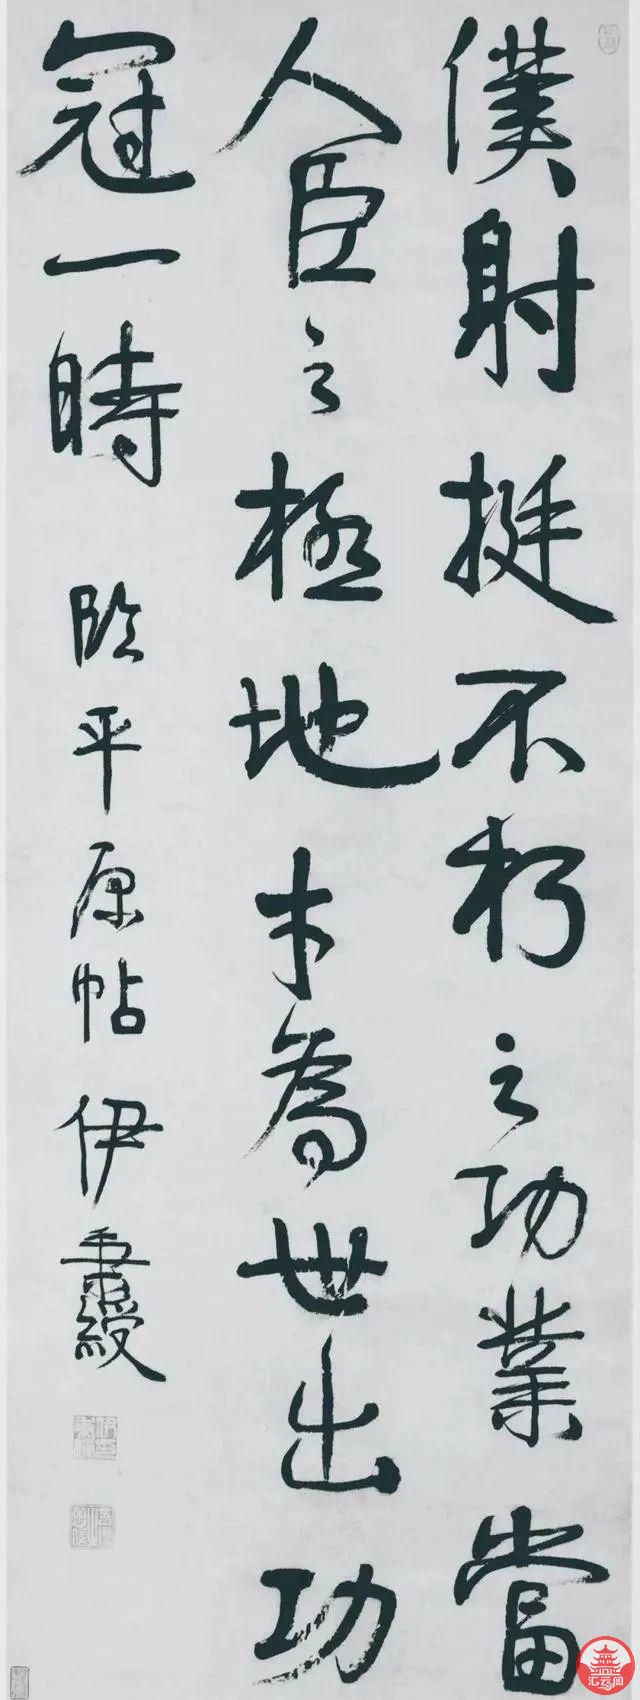 僕射挺不朽之功業當
人臣之極地才為世出功
冠一時 臨平原帖 伊秉綬
汇云阁